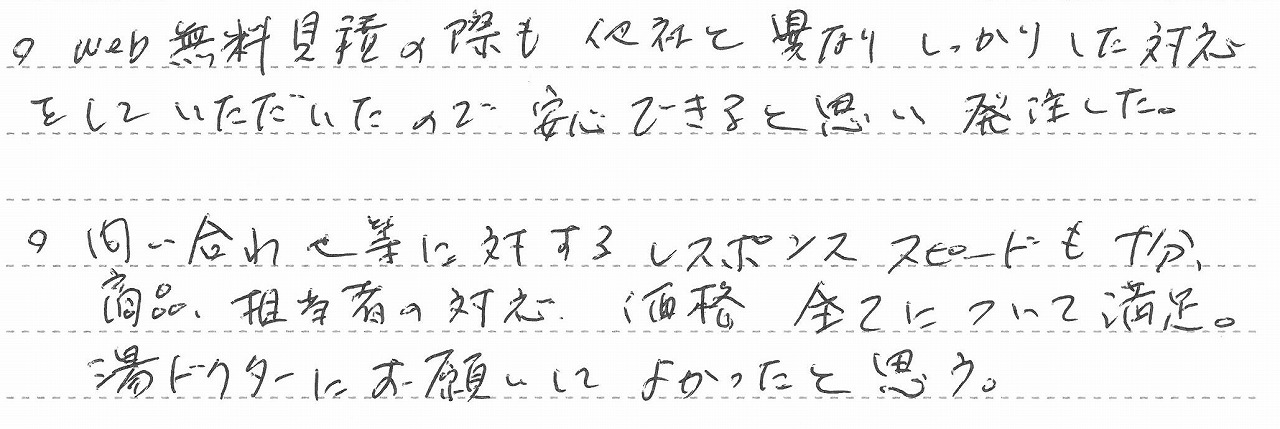 ○ web無料見積の際も 他社と 異なり しっかりした対応
をして いただいたので 安心できると思い 発注した。
○ 問い合わせ等に対するレスポンススピードも十分、
商品、担当者の対応、価格 全てについて満足。
湯ドクターにお願いして よかったと思う。